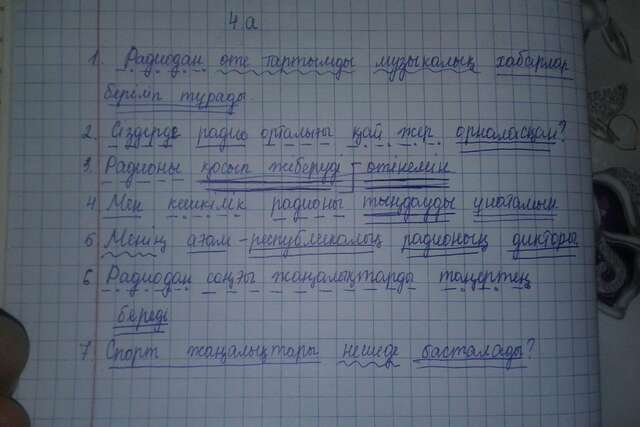 4 а
1. Радиодан өте тартымды музыкалық хабарлар
беріліп тұрады.
2. Сіздерде радио орталығы қай жер орналасқан?
3. Радионы қосып жіберуді өтінемін
4. Мен кешкілік радионы тыңдауды ұнатамын.
5 Менің ағам - республикалық радионың дикторы.
6 Радиодан соңғы жаңалықтарды таңертең
береді
7. Спорт жаңалықтары нешеде басталады?